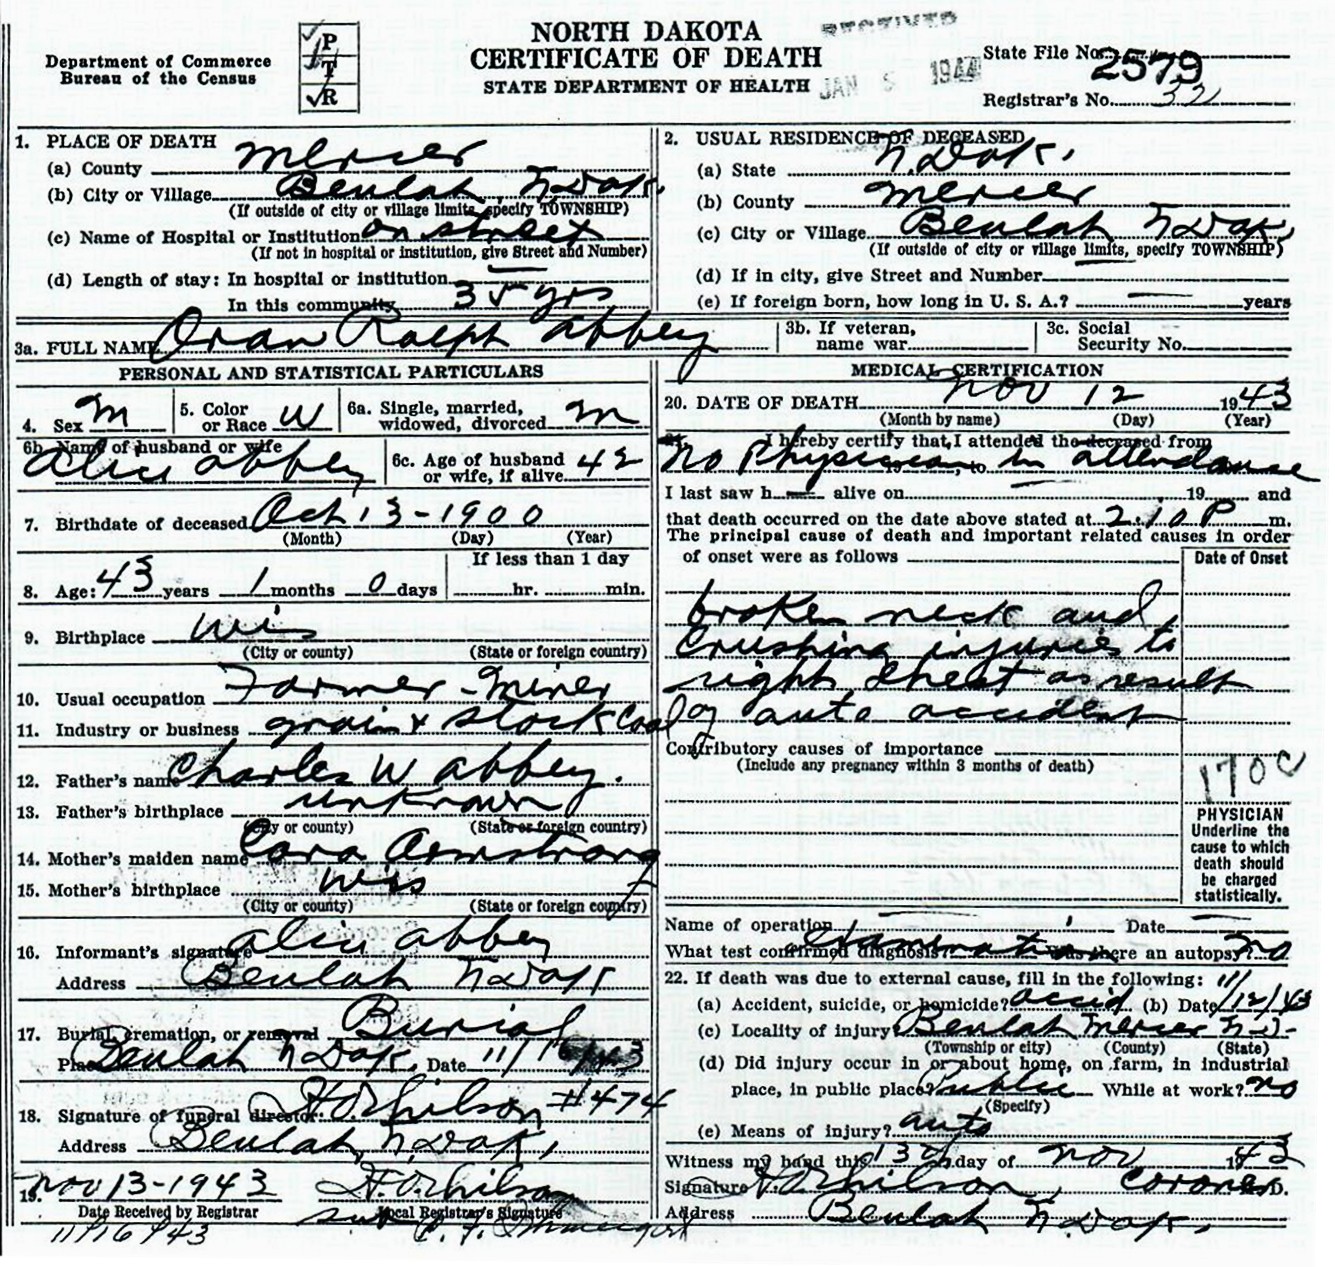 NORTH DAKOTA
CERTIFICATE OF DEATH
STATE DEPARTMENT OF HEALTH
Department of Commerce
Bureau of the Census
P
T
R
RECEIVED
JAN 5 1944
State File No. 2579
Registrar's No. 32
1. PLACE OF DEATH
(a) County Mercer
(b) City or Village Beulah, N.Dak.
(If outside of city or village limits, specify TOWNSHIP)
(c) Name of Hospital or Institution on street
(If not in hospital or institution, give Street and Number)
(d) Length of stay: In hospital or institution
In this community 35 yrs
2. USUAL RESIDENCE OF DECEASED
(a) State N.Dak.
(b) County Mercer
(c) City or Village Beulah N Dak,
(If outside of city or village limits, specify TOWNSHIP)
(d) If in city, give Street and Number
(e) If foreign born, how long in U. S. A.? years
3a. FULL NAME Oran Ralph Abbey
3b. If veteran, name war
3c. Social Security No.
PERSONAL AND STATISTICAL PARTICULARS
4. Sex M
5. Color or Race W
6a. Single, married, widowed, divorced M
6b. Name of husband or wife Alice Abbey
6c. Age of husband or wife, if alive 42
7. Birthdate of deceased Oct 13-1900
(Month) (Day) (Year)
If less than 1 day
8. Age: 43 years 1 months 0 days hr. min.
9. Birthplace Wis
(City or county) (State or foreign country)
10. Usual occupation Farmer-Miner
11. Industry or business grain & stock Coal
12. Father's name Charles W Abbey.
13. Father's birthplace unknown
(City or county) (State or foreign country)
14. Mother's maiden name Cora Armstrong
15. Mother's birthplace Wis
(City or county) (State or foreign country)
16. Informant's signature Alice Abbey
Address Beulah N Dak
17. Burial, cremation, or removal Burial
Place Beulah N Dak. Date 11/16/43
18. Signature of funeral director: #474
Address Beulah, N. Dak,
19. Nov 13-1943
Date Received by Registrar Local Registrar's Signature
11/16/43 sub
MEDICAL CERTIFICATION
20. DATE OF DEATH Nov 12 1943
(Month by name) (Day) (Year)
I hereby certify that I attended the deceased from
No Physician in attendance
I last saw h alive on 19 and
that death occurred on the date above stated at 2:10 P m.
The principal cause of death and important related causes in order
of onset were as follows Date of Onset
broken neck and
crushing injuries to
right chest as result
of auto accident
Contributory causes of importance
(Include any pregnancy within 3 months of death)
170c
PHYSICIAN
Underline the
cause to which
death should
be charged
statistically.
Name of operation Date
What test confirmed diagnosis? examination Was there an autopsy? no
22. If death was due to external cause, fill in the following:
(a) Accident, suicide, or homicide? accid (b) Date 11/12/43
(c) Locality of injury Beulah Mercer N.D.
(Township or city) (County) (State)
(d) Did injury occur in or about home, on farm, in industrial
place, in public place? Public While at work? no
(Specify)
(e) Means of injury? auto
Witness my hand this 13 day of Nov 1943
Signature Coroner M.D.
Address Beulah N Dak,